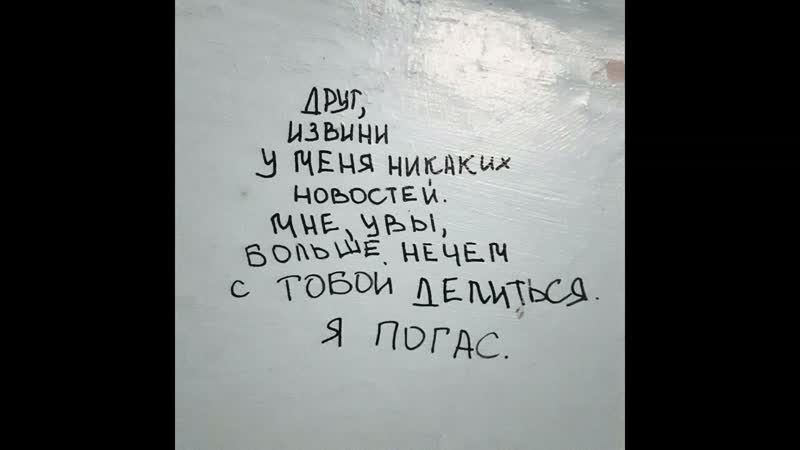 ДРУГ,
ИЗВИНИ
У МЕНЯ НИКАКИХ
НОВОСТЕЙ.
МНЕ, УВЫ,
БОЛЬШЕ НЕЧЕМ
С ТОБОЙ ДЕЛИТЬСЯ.
Я ПОГАС.